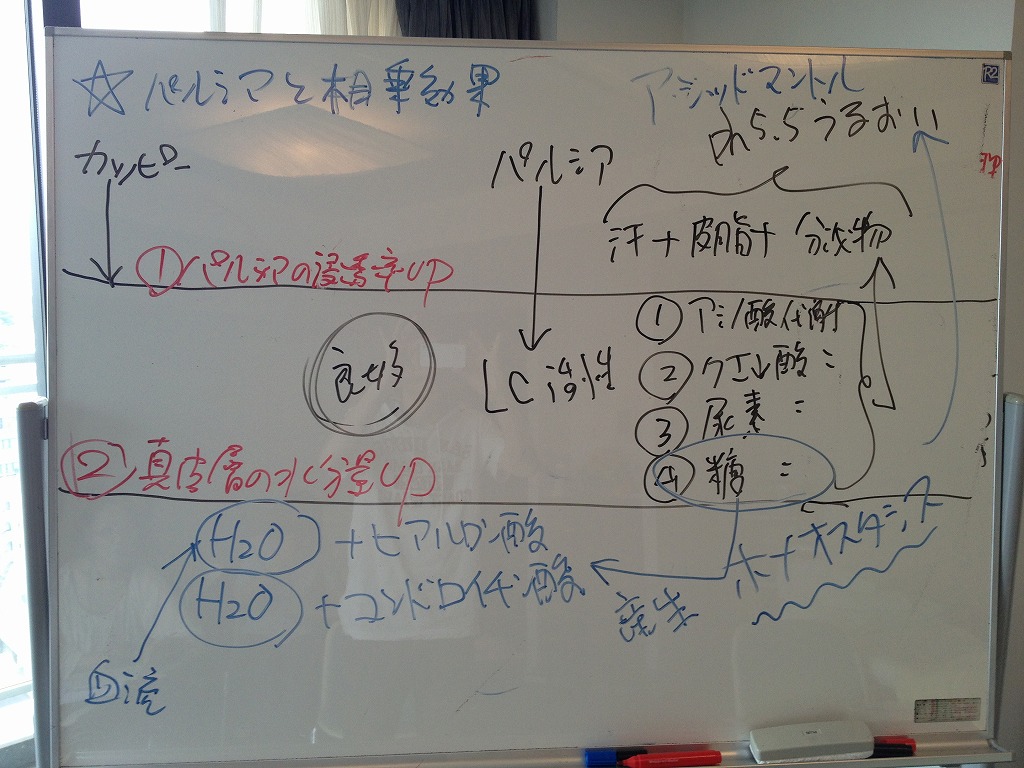 ☆パルシアと相乗効果
アシッドマントル
pH5.5うるおい
カッピー
パルシア
汗+皮脂+分泌物
①パルシアの浸透率UP
①アミノ酸代謝
②クエン酸〃
③尿素〃
④糖〃
LC活性
②真皮層の水分量UP
H2O+ヒアルロン酸
H2O+コンドロイチン酸
産生
ホメオスタシス
血流